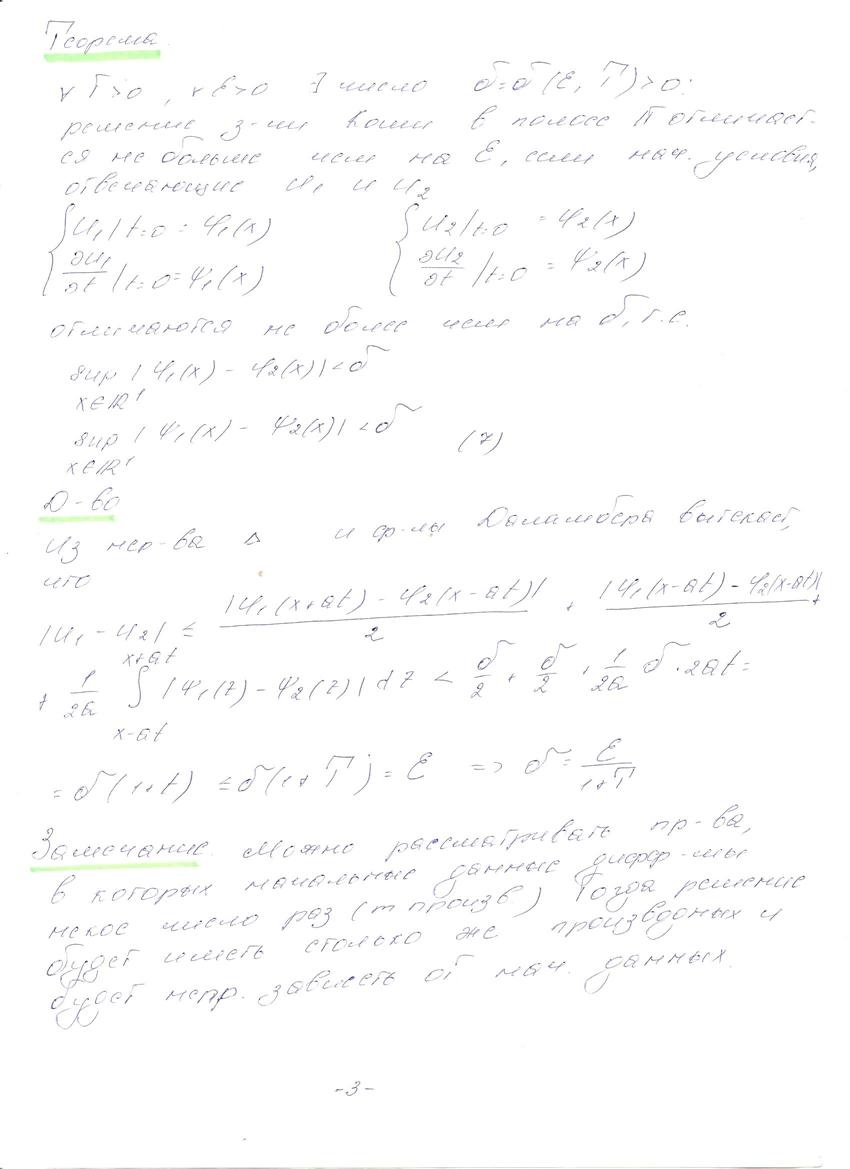 Теорема
∀ T>0, ∀ ε>0 ∃ число δ=δ(ε, T)>0:
решение з-чи Коши в полосе П отличает-
ся не больше чем на ε, если нач. условия,
отвечающие u₁ и u₂
{ u₁|t=0 = φ₁(x) { u₂|t=0 = φ₂(x)
∂u₁/∂t |t=0 = ψ₁(x) ∂u₂/∂t |t=0 = ψ₂(x)
отличаются не более чем на δ, т.е.
sup |φ₁(x) - φ₂(x)| < δ
x∈ℝ¹
sup |ψ₁(x) - ψ₂(x)| < δ (7)
x∈ℝ¹
Д-во
Из нер-ва Δ и ф-лы Даламбера вытекает,
что
|u₁ - u₂| ≤ |φ₁(x+at) - φ₂(x-at)|/2 + |φ₁(x-at) - φ₂(x-at)|/2 +
+ 1/2a ∫_{x-at}^{x+at} |ψ₁(z) - ψ₂(z)| dz < δ/2 + δ/2 + 1/2a δ·2at =
= δ(1+t) ≤ δ(1+T) = ε => δ = ε/1+T
Замечание. Можно рассматривать пр-ва,
в которых начальные данные дифф-мы
некое число раз (m произв.) Тогда решение
будет иметь столько же производных и
будет непр. зависеть от нач. данных.
-3-